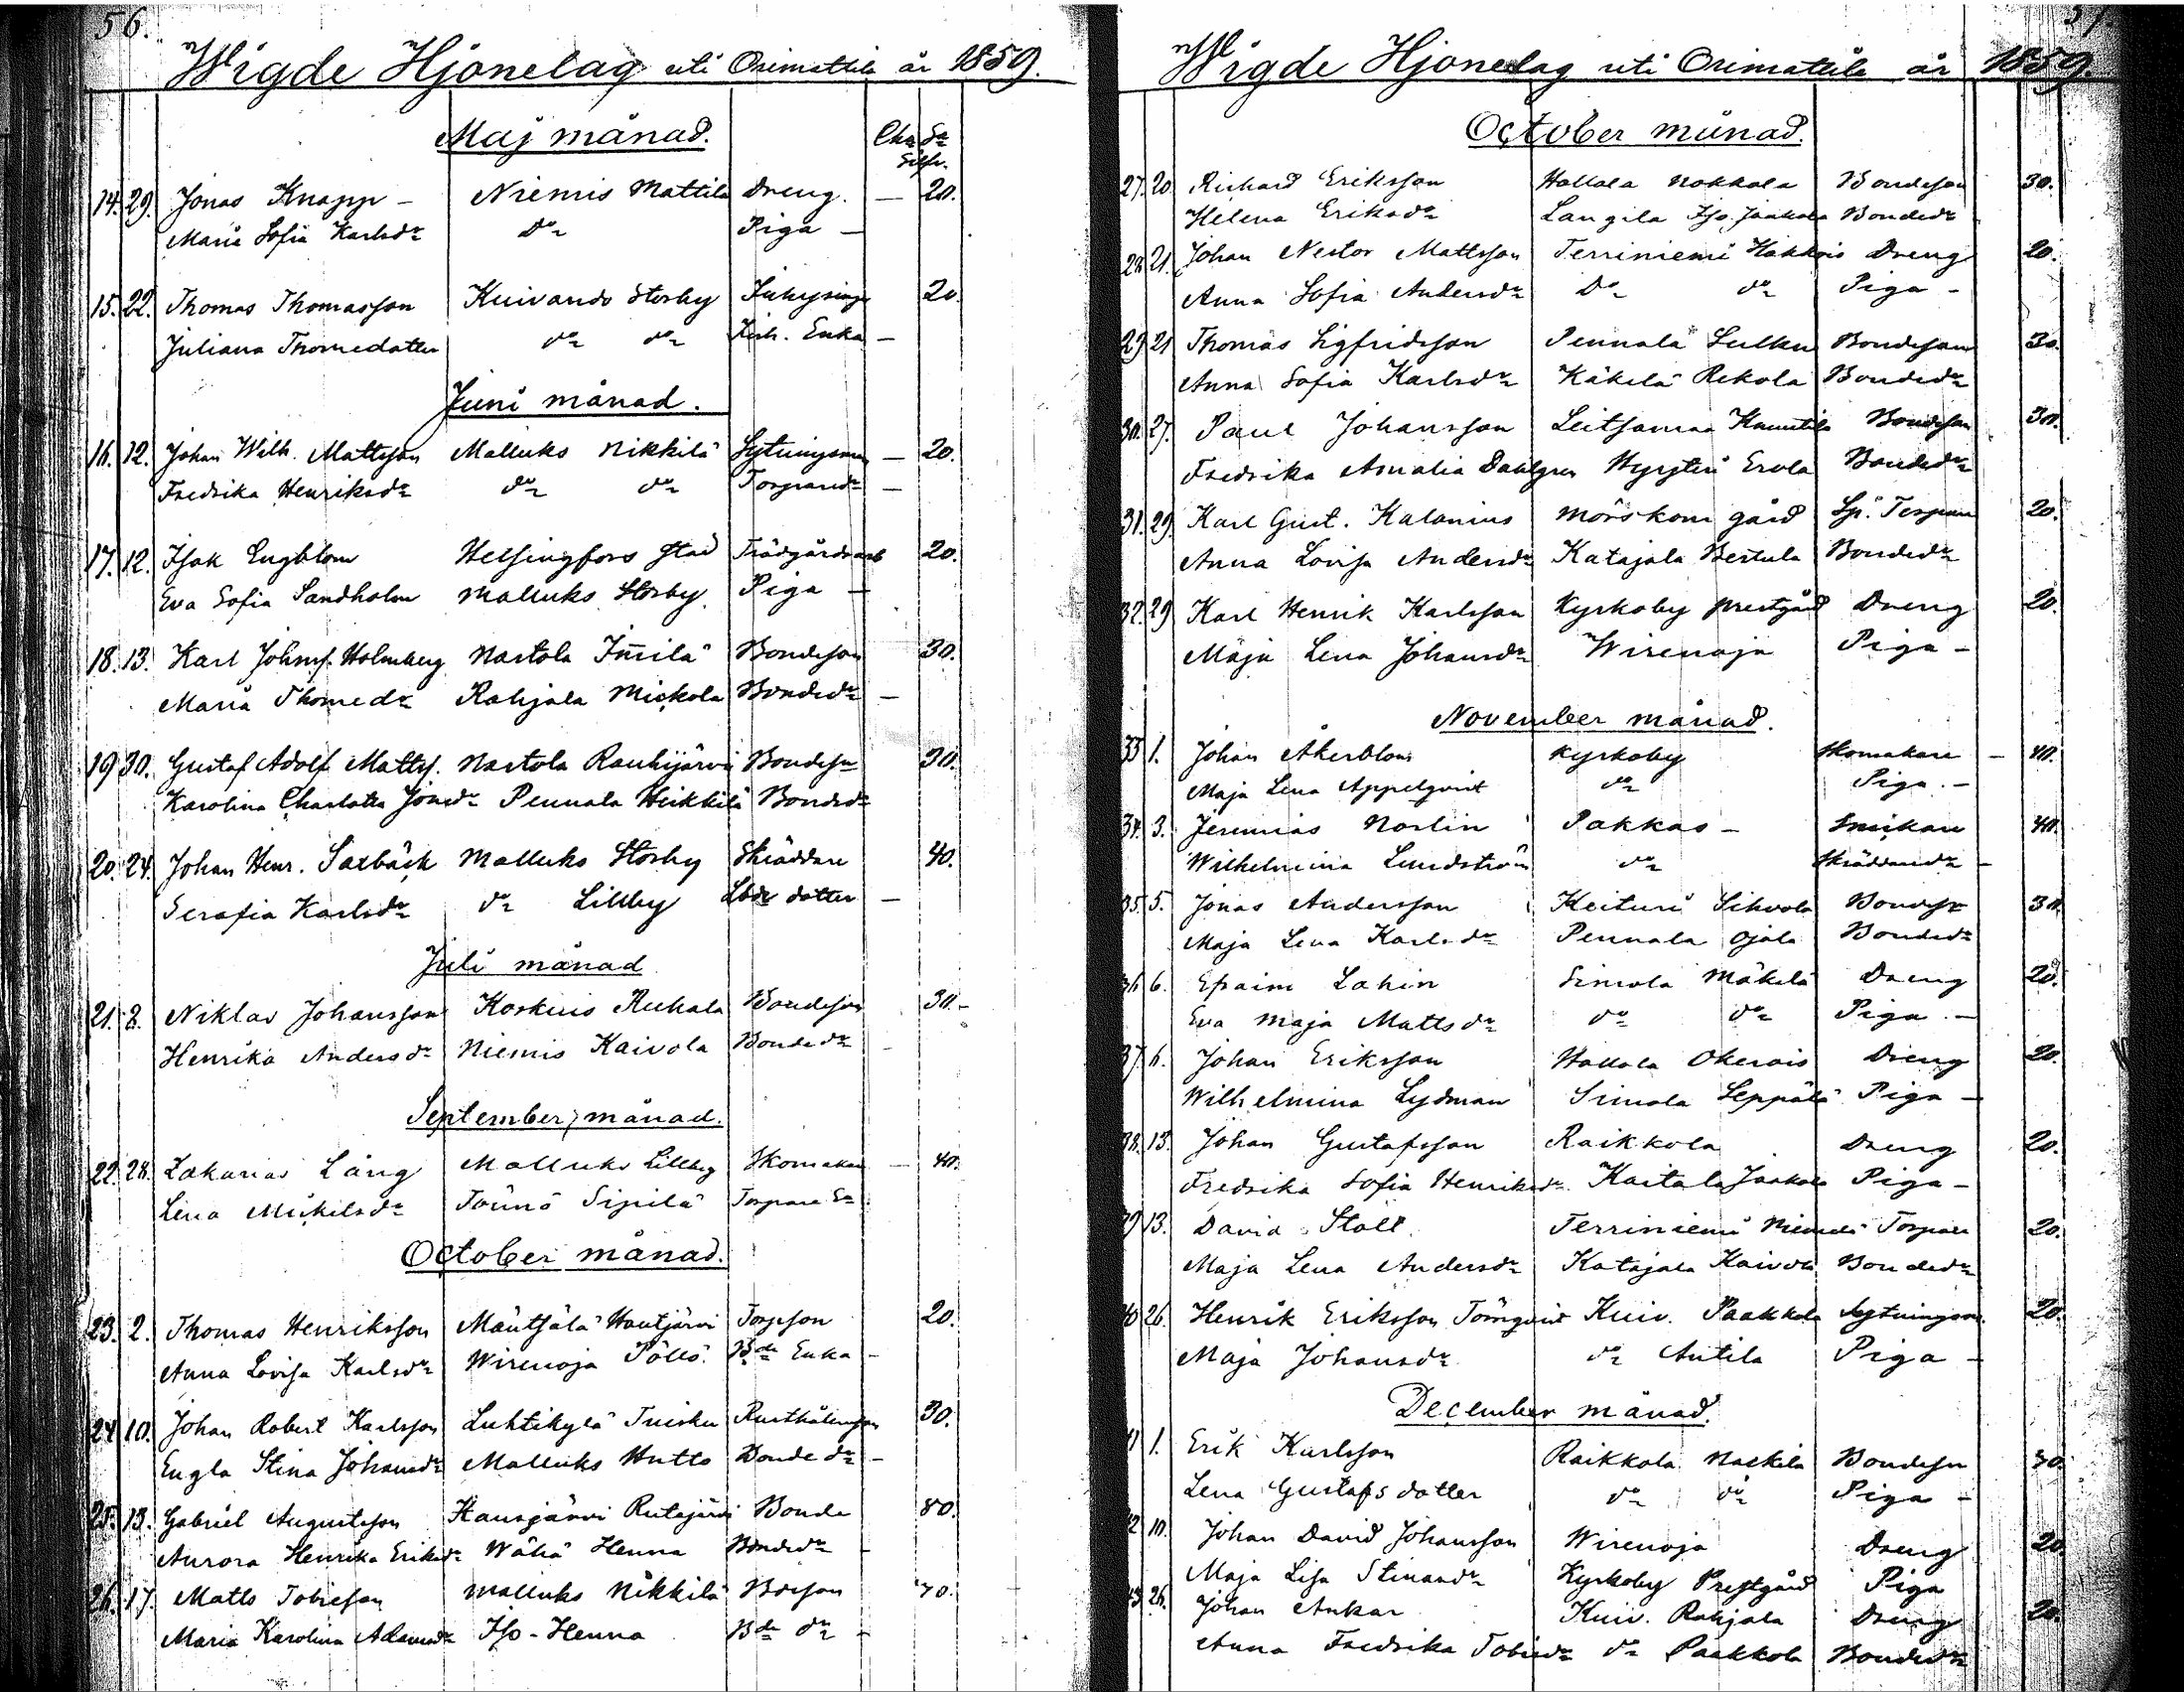 56.
Wigde Hjonelag uti Orimattila år 1859.
Maj månad.
14. 29. Jonas Knapp – Niemis Mattila Dreng. — 20.
Maria Sofia Karlsdr do Piga –
15. 22. Thomas Thomasson Kuivando Storby 20.
Juliana Thomedotter do do Enka –
Juni månad.
16. 12. Johan Wilh. Mattsson Malluks Nikkilä — 20.
Fredrika Henriksdr do do Torparedr —
17. 12. Isak Engblom Helsingfors stad 20.
Eva Sofia Sandholm Malluks Storby Piga –
18. 13. Karl Johnsf. Holmberg Nastola Immilä Bondeson 30.
Maria Thomedr Rahjala Mickola Bondedr –
19 30. Gustaf Adolf Mattss. Nastola Rauhijärvi Bondeson 30.
Karolina Charlotta Jonsdr Pennala Heikkilä Bondedr
20. 24. Johan Henr. Saxbäck Malluks Storby Skräddare 40.
Serafia Karlsdr do Lillby dotter –
Juli månad
21. 8. Niklas Johansson Koskuis Ruhala Bondeson 30.–
Henrika Andersdr Niemis Kaivola Bondedr –
September månad.
22. 28. Zakarias Lång Malluks Lillby Skomakare — 40.
Lena Mickelsdr Tönnö Sipilä Torpare
October månad.
23. 2. Thomas Henriksson Mäntsälä Hautjärvi Torpson 20.
Anna Lovisa Karlsdr Wirenoja Pöllö Bde Enka –
24 10. Johan Robert Karlsson Luhtikylä Tuisku Rusthållarson 30.
Engla Stina Johansdr Malluks Hutto Bondedr –
25. 13. Gabriel Augustsson Hausjärvi Rutajärvi Bonde 80.
Aurora Henrika Eriksdr Wähä Henna Bondedr –
26. 17. Matts Tobiesson Malluks Nikkilä Bdeson 40.
Maria Karolina Adamsdr Iso-Henna Bde dr –
Wigde Hjonelag uti Orimattila år 1859.
October månad.
27. 20 Richard Eriksson Hollola Nokkola Bondeson 30.
Helena Eriksdr Langila Iso Jaakola Bondedr
28 21. Johan Nestor Mattsson Terriniemi Hakkois Dreng 20.
Anna Sofia Andersdr do do Piga –
29 21 Thomas Sigfridsson Pennala Lulku Bondeson 30.
Anna Sofia Karlsdr Käkelä Rekola Bondedr
30. 27. Paul Johansson Leitsamaa Bondeson 30.
Fredrika Amalia Dahlgren Erola Bondedr
31. 29. Karl Gust. Kalanius Mörskom gård 20.
Anna Lovisa Andersdr Katajala Bertula Bondedr
32. 29 Karl Henrik Karlsson Kyrkoby prestgård Dreng 20.
Maja Lena Johansdr Wirenoja Piga –
November månad.
33 1. Johan Åkerblom Kyrkoby Skomakare — 40.
Maja Lena Appelqvist do Piga. –
34. 3. Jeremias Norlin Pakkas – Snickare 40.
Wilhelmina Lundström do Skräddaredr –
35. 5. Jonas Andersson Keituri Sihvola Bondeson 30.
Maja Lena Karlsdr Pennala Ojala Bondedr
36 6. Efraim Lahin Simola Mäkelä Dreng 20.
Eva Maja Mattsdr do do Piga –
37. 6. Johan Eriksson Hollola Okerois Dreng 20.
Wilhelmina Lydman Simola Leppälä Piga –
38. 13. Johan Gustafsson Raikkola Dreng 20.
Fredrika Sofia Henriksdr Kaitala Jaakola Piga –
39 13. David Ståll Terriniemi Torpare 20.
Maja Lena Andersdr Katajala Kaivola Bondedr
40 26. Henrik Eriksson Törnqvist Kuiv. Paakkola 20.
Maja Johansdr do Antila Piga –
December månad.
41 1. Erik Karlsson Raikkola Naskila Bondeson 30.
Lena Gustafsdotter do do Piga –
42 10. Johan David Johansson Wirenoja Dreng 20.
Maja Lisa Stinasdr Kyrkoby Prestgård Piga
43 26. Johan Ankar Kuiv. Rahjala Dreng 20.
Anna Fredrika Tobiedr do Paakkola Bondedr